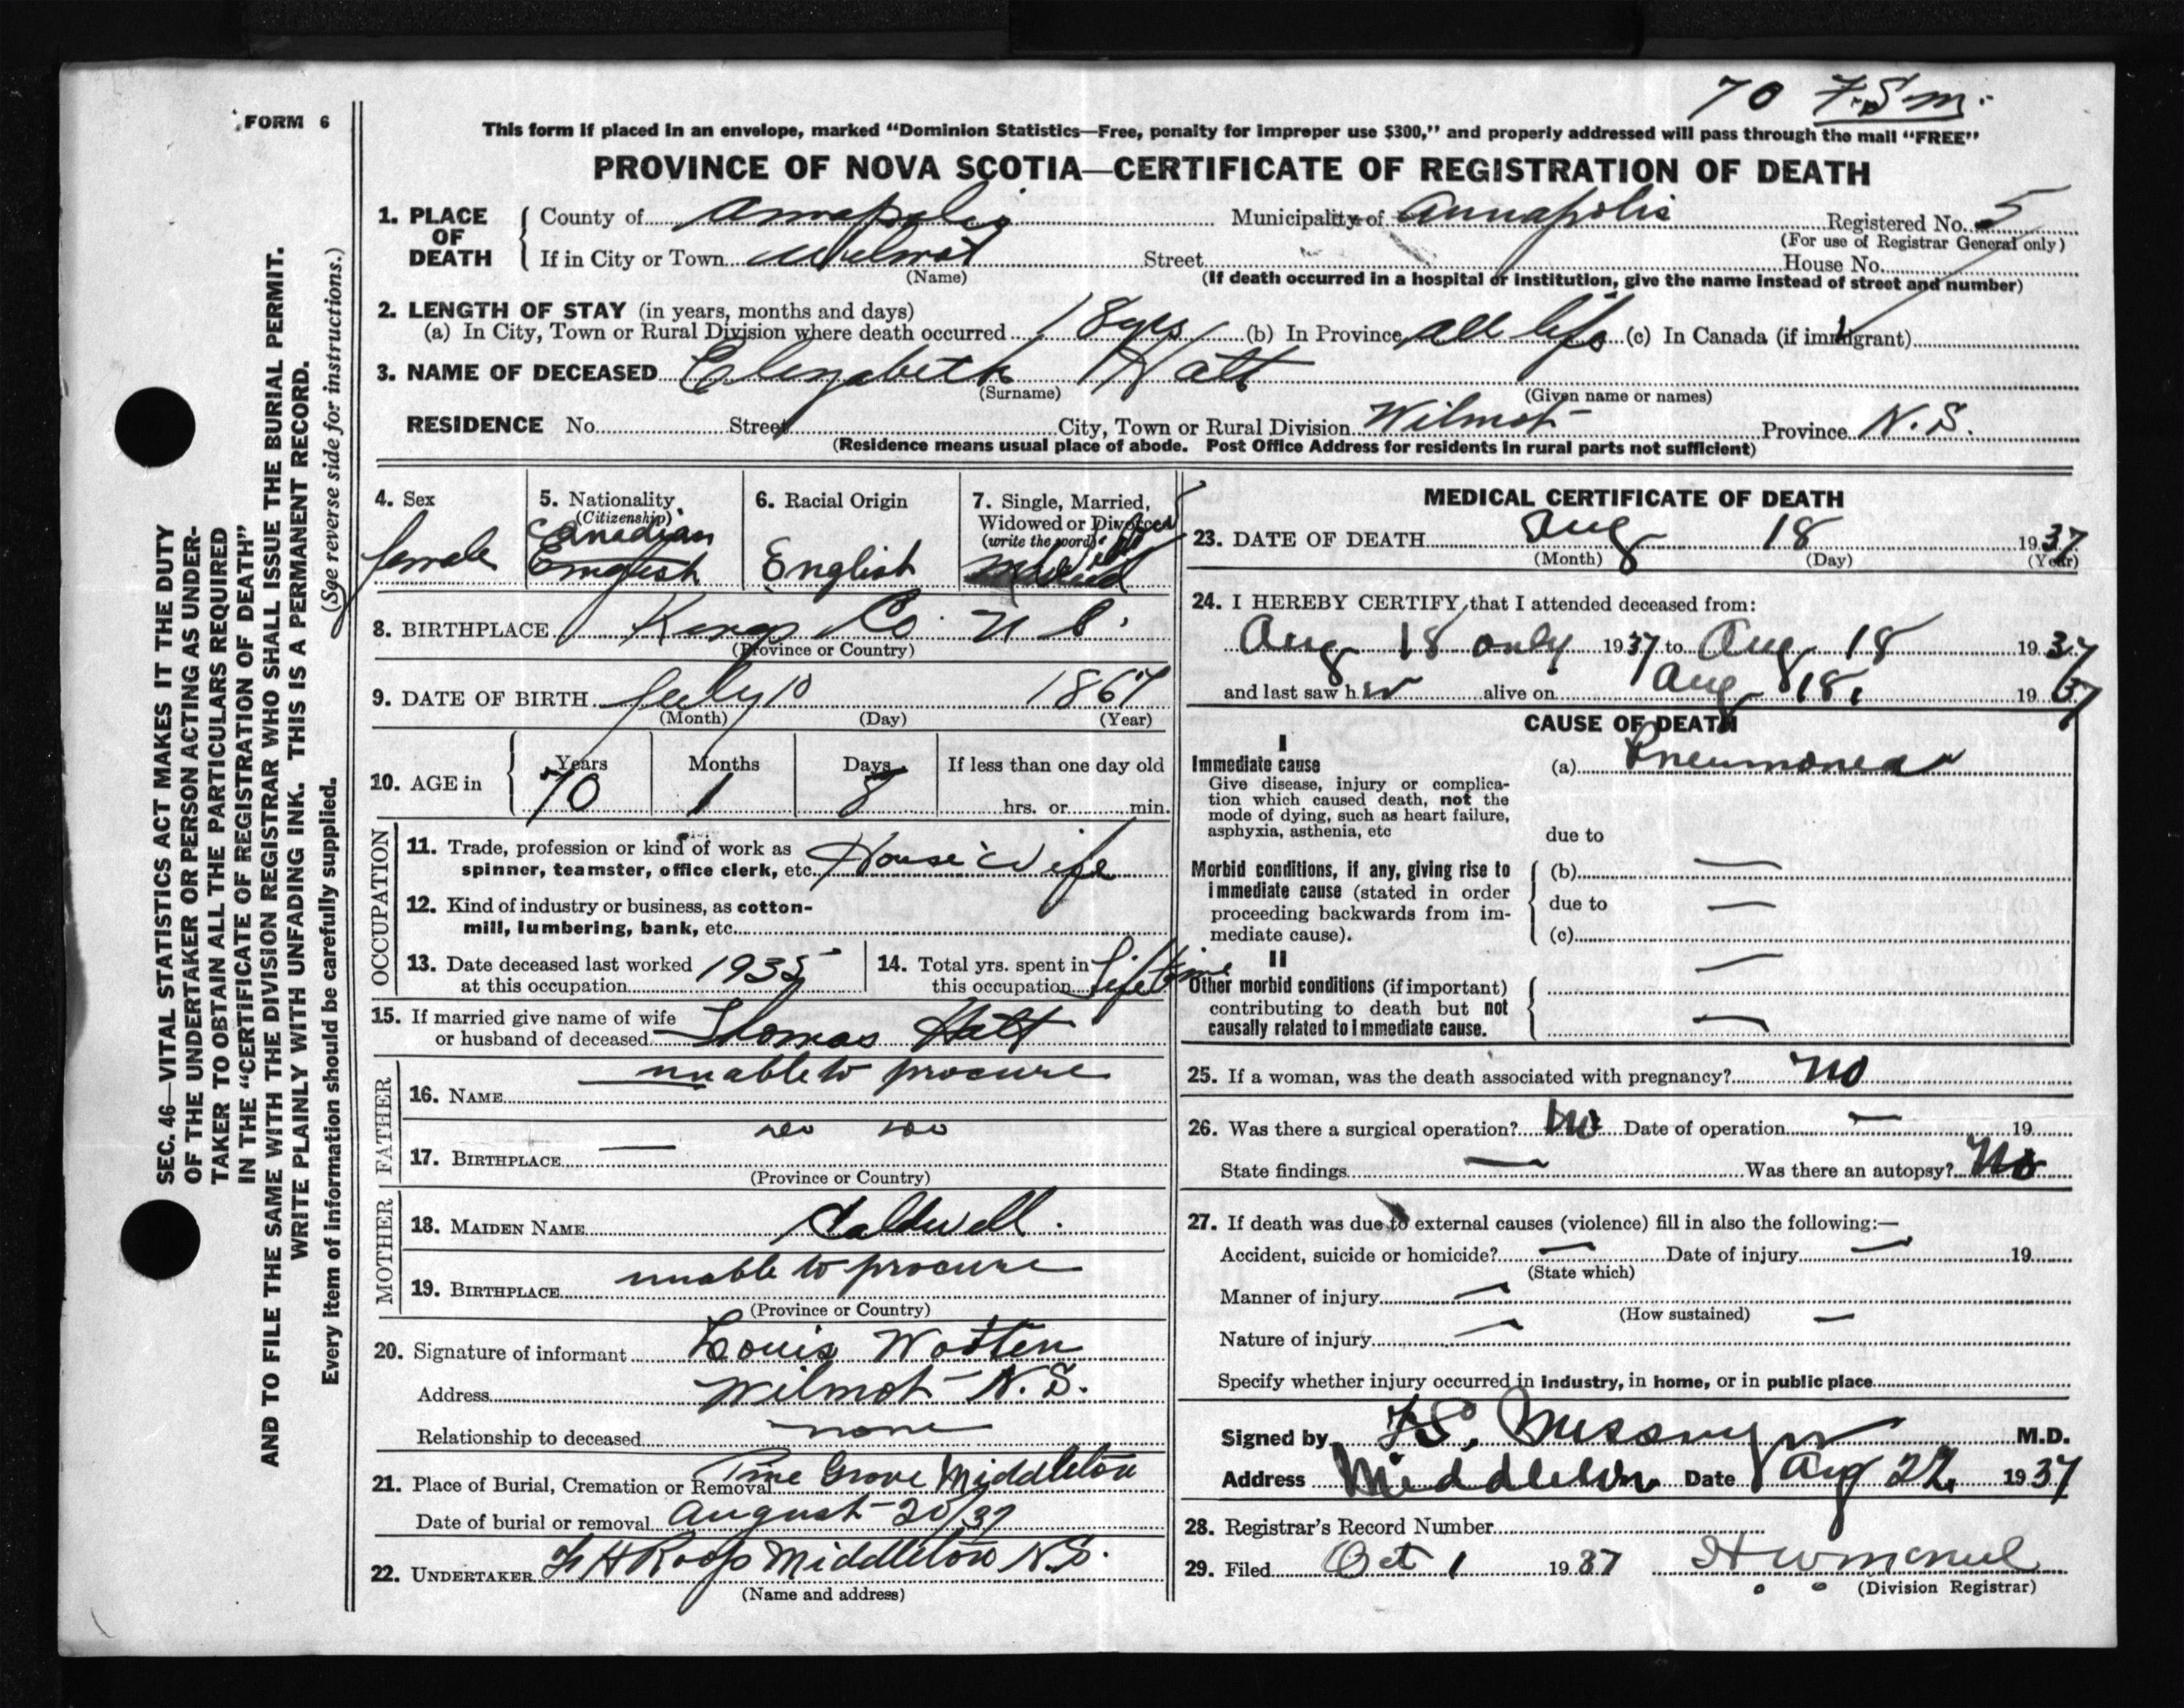 70 F.S.M.
FORM 6
This form if placed in an envelope, marked “Dominion Statistics—Free, penalty for improper use $300,” and properly addressed will pass through the mail “FREE”
PROVINCE OF NOVA SCOTIA—CERTIFICATE OF REGISTRATION OF DEATH
1. PLACE OF DEATH
County of Annapolis Municipality of Annapolis Registered No. 5
(For use of Registrar General only)
If in City or Town Wilmot Street House No.
(Name) (If death occurred in a hospital or institution, give the name instead of street and number)
2. LENGTH OF STAY (in years, months and days)
(a) In City, Town or Rural Division where death occurred 18 yrs (b) In Province all life (c) In Canada (if immigrant)
3. NAME OF DECEASED Elizabeth Hatt
(Surname) (Given name or names)
RESIDENCE No. Street City, Town or Rural Division Wilmot Province N.S.
(Residence means usual place of abode. Post Office Address for residents in rural parts not sufficient)
4. Sex
female
5. Nationality
(Citizenship)
Canadian
6. Racial Origin
English
7. Single, Married,
Widowed or Divorced
(write the word)
8. BIRTHPLACE Kings Co. N.S.
(Province or Country)
9. DATE OF BIRTH July 10 1867
(Month) (Day) (Year)
10. AGE in
Years Months Days If less than one day old
70 1 8 hrs. or min.
OCCUPATION
11. Trade, profession or kind of work as
spinner, teamster, office clerk, etc. House Wife
12. Kind of industry or business, as cotton-
mill, lumbering, bank, etc.
13. Date deceased last worked
at this occupation 1935
14. Total yrs. spent in
this occupation Life time
15. If married give name of wife
or husband of deceased Thomas Hatt
FATHER
16. NAME unable to procure
17. BIRTHPLACE —
(Province or Country)
MOTHER
18. MAIDEN NAME Caldwell.
19. BIRTHPLACE unable to procure
(Province or Country)
20. Signature of informant Louis Wotten
Address Wilmot N.S.
Relationship to deceased none
21. Place of Burial, Cremation or Removal Pine Grove Middleton
Date of burial or removal August 20/37
22. UNDERTAKER F H Roop Middleton N.S.
(Name and address)
MEDICAL CERTIFICATE OF DEATH
23. DATE OF DEATH Aug 18 1937
(Month) (Day) (Year)
24. I HEREBY CERTIFY, that I attended deceased from:
Aug 18 only 1937 to Aug 18 1937
and last saw her alive on Aug 18, 1937
CAUSE OF DEATH
I
Immediate cause
Give disease, injury or complica-
tion which caused death, not the
mode of dying, such as heart failure,
asphyxia, asthenia, etc
(a) Pneumonia
due to
Morbid conditions, if any, giving rise to
immediate cause (stated in order
proceeding backwards from im-
mediate cause).
(b) —
due to —
(c)
II
Other morbid conditions (if important)
contributing to death but not
causally related to immediate cause.
—
—
25. If a woman, was the death associated with pregnancy? no
26. Was there a surgical operation? No Date of operation — 19
State findings — Was there an autopsy? No
27. If death was due to external causes (violence) fill in also the following:—
Accident, suicide or homicide? — Date of injury — 19
(State which)
Manner of injury —
(How sustained) —
Nature of injury —
Specify whether injury occurred in industry, in home, or in public place
Signed by F.S. Messenger M.D.
Address Middleton Date Aug 22, 1937
28. Registrar's Record Number
29. Filed Oct 1 1937
(Division Registrar)
SEC. 46—VITAL STATISTICS ACT MAKES IT THE DUTY
OF THE UNDERTAKER OR PERSON ACTING AS UNDER-
TAKER TO OBTAIN ALL THE PARTICULARS REQUIRED
IN THE “CERTIFICATE OF REGISTRATION OF DEATH”
AND TO FILE THE SAME WITH THE DIVISION REGISTRAR WHO SHALL ISSUE THE BURIAL PERMIT.
WRITE PLAINLY WITH UNFADING INK. THIS IS A PERMANENT RECORD.
Every item of information should be carefully supplied. (See reverse side for instructions.)